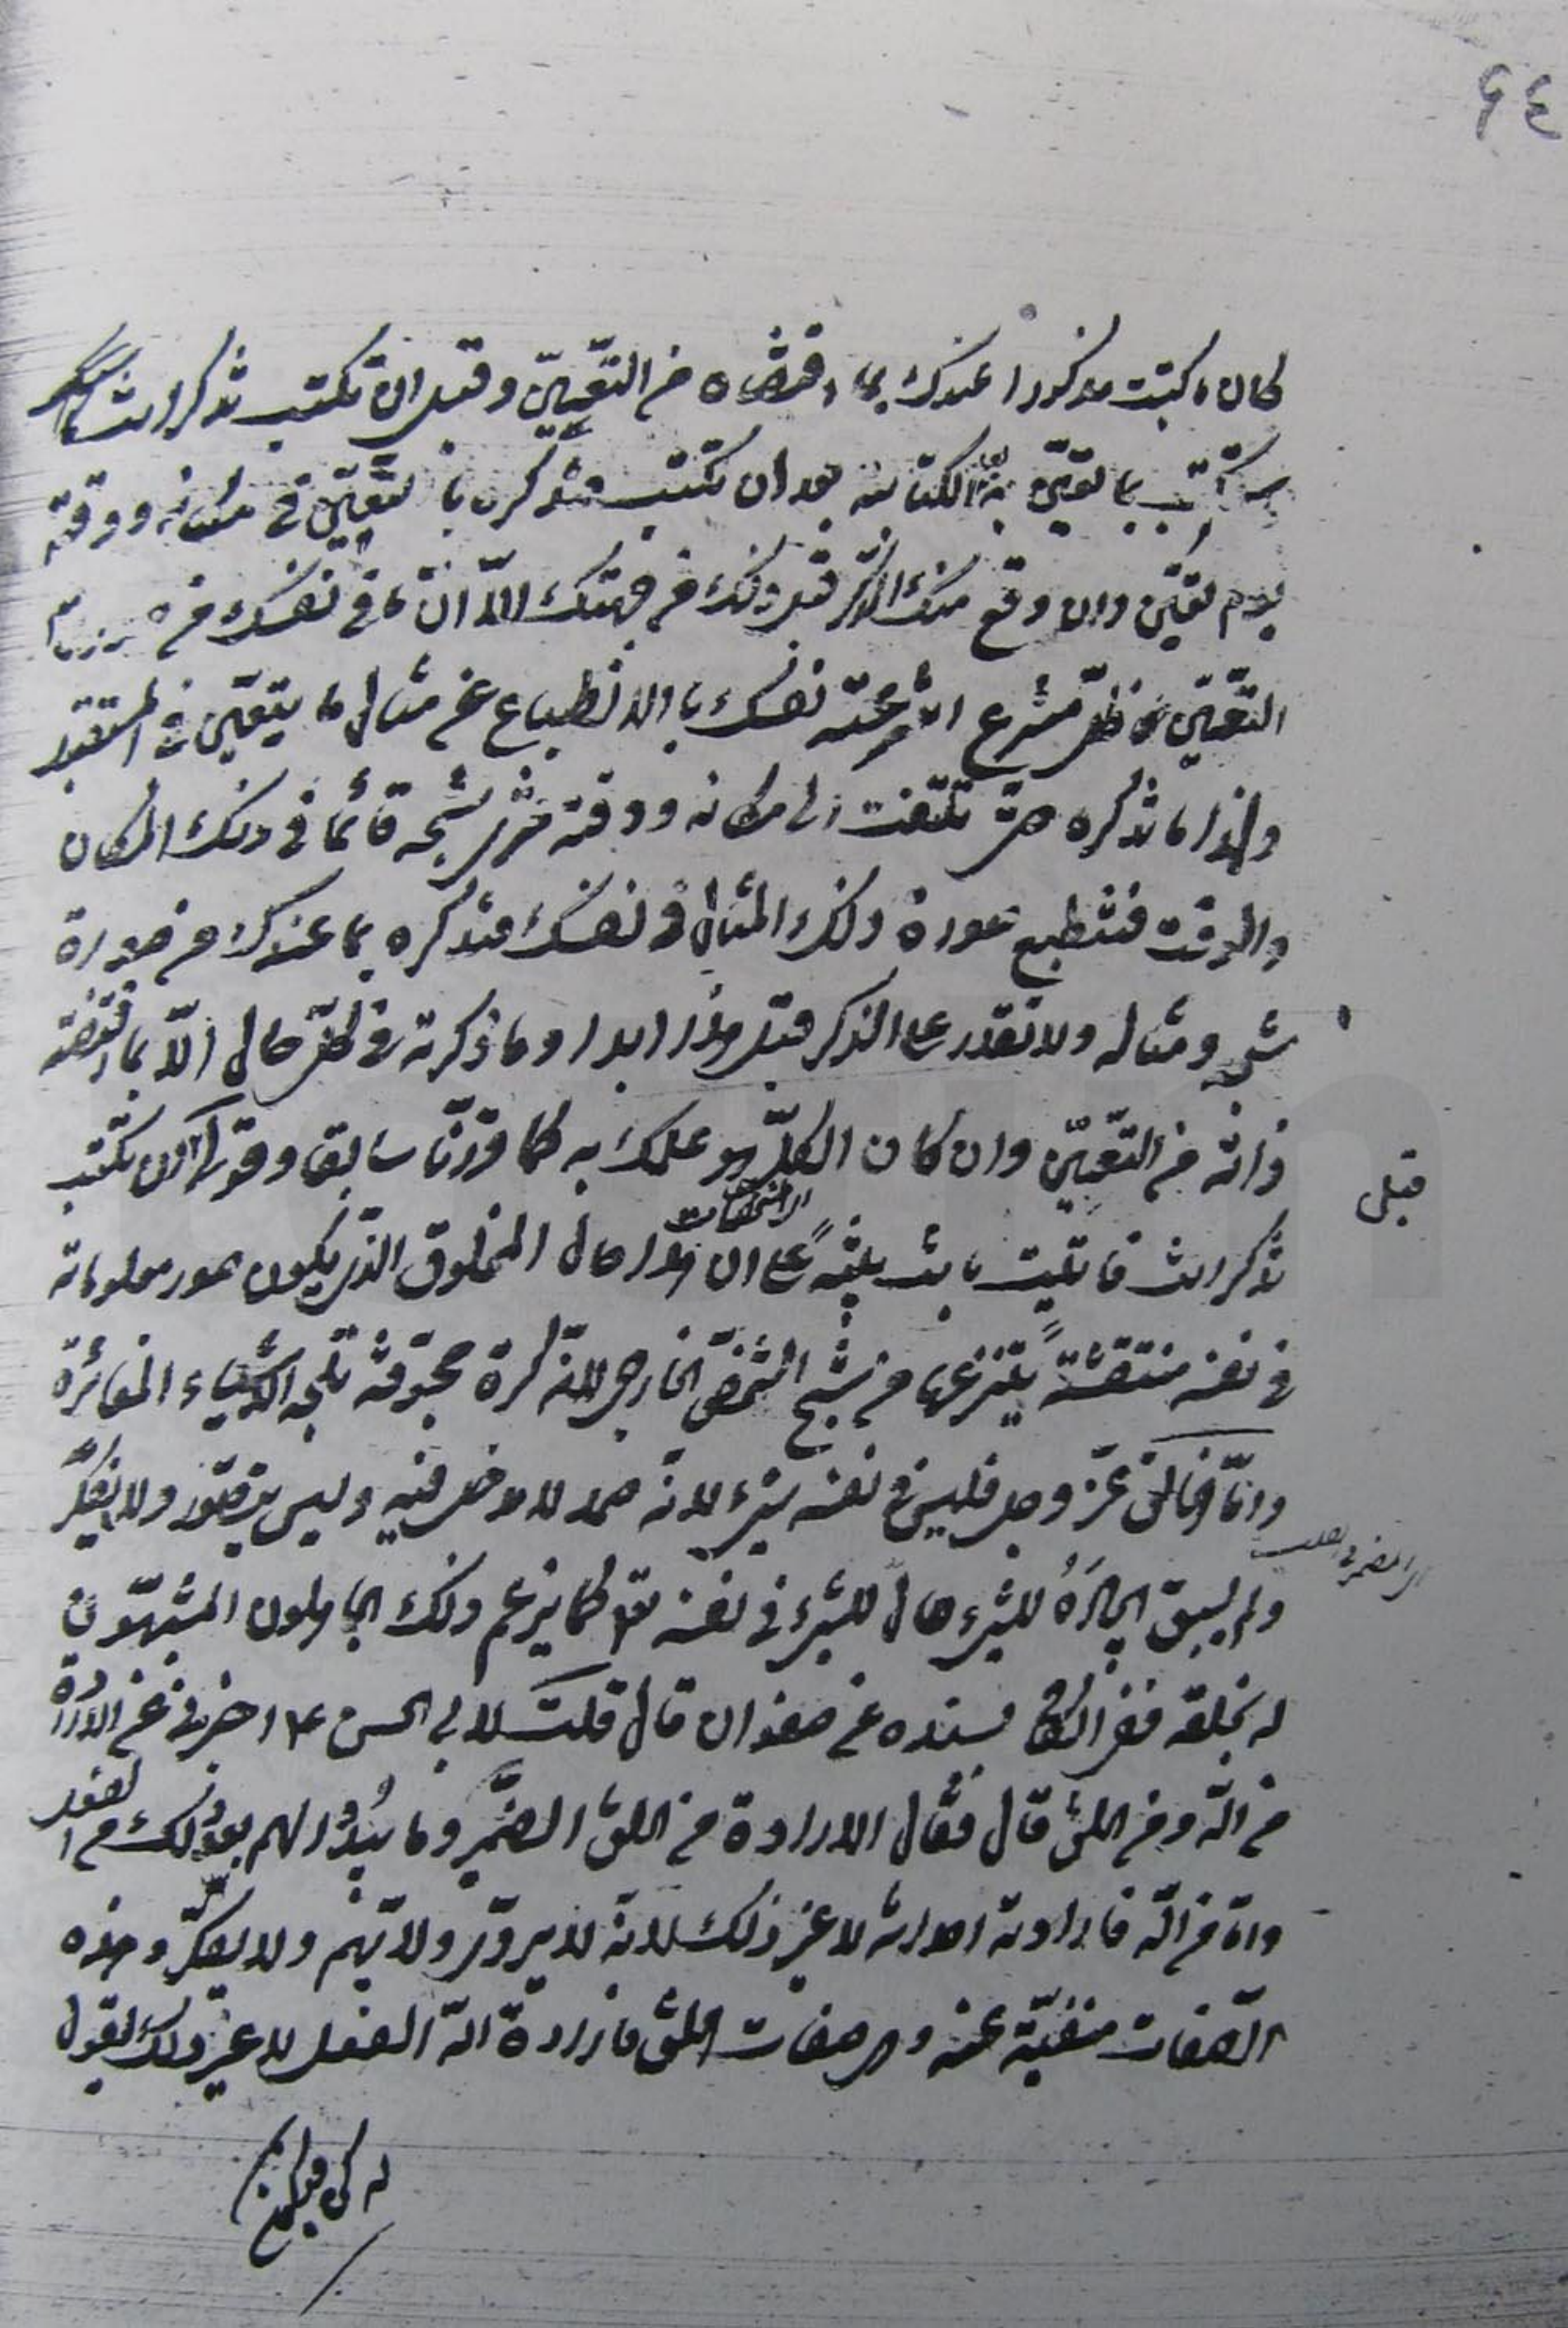 ٤٤
كان ما كتبت مذكورا عندك بما اقتضاه من التعيّن وقبل ان تكتب تذكر انك
ستكتب بما تعيّن به الكتابة بعد ان تكتب فتذكره بالتعيّن في مكانه ووقته
يوم تعيّن وان وقع منك الذكر قبل ذلك من جهتك الا ان ما في نفسك من
التعيّن ظلّ منتزع انتزعته نفسك بالانطباع عن مثال ما يتعيّن في المستقبل
ولهذا ما تذكره حتى تلتفت الى مكانه ووقته فترى شبحه قائما في ذلك المكان
والوقت فتنطبع صورة ذلك المثال في نفسك فتذكره بما عندك من صورة
شبحه ومثاله ولا تقدر على الذكر قبل هذا ابدا وما ذكرته في كلّ حال الّا بما اقتضته
ذاته من التعيّن وان كان الكلّ هو علمك به كما قررنا سابقا وقولك ان تكتب
قبل
تذكر انك على ان هذا حال المخلوق الذي يكون صور معلوماته
الانتقاشات
في نفسه منتقشة ينتزعها من شبح الشخص الخارجي لانه كرة مجوّفة تلجه الاشياء المغائرة
وامّا الخالق عزّ وجل فليس في نفسه شيء لانه صمد لا مدخل فيه وليس بتصوّر ولا بفكر
ولم يسبق ايجاده للشيء حال للشيء في نفسه تعالى كما يزعم ذلك الجاهلون المشبهون
له بخلقه ففي الكافي بسنده عن صفوان قال قلت لابي الحسن ع اخبرني عن الارادة
من الله ومن الخلق قال فقال الارادة من الخلق الضمير وما يبدو لهم بعد ذلك من الفعل
وامّا من الله فارادته احداثه لا غير ذلك لانه لا يروّي ولا يهمّ ولا يتفكّر وهذه
الصفات منفيّة عنه وهي صفات الخلق فارادة الله الفعل لا غير ذلك يقول
له كن فيكون